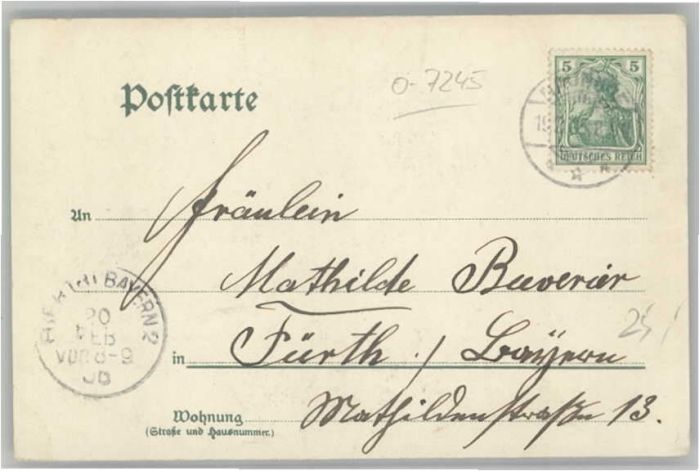 Postkarte
o-7245
5 5
DEUTSCHES REICH
An Fräulein
Mathilde Baverier
FUERTH BAYERN 2
20
FEB
VOR 8-9
06
in Fürth / Bayern
25/
Wohnung
(Straße und Hausnummer.)
Mathildenstraße 13.